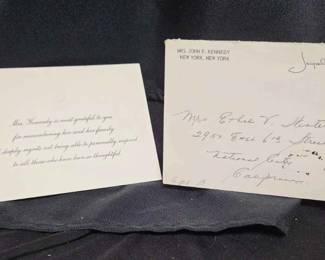 Mrs. Kennedy is most grateful to you
for remembering her and her family
deeply regrets not being able to personally respond
to all those who have been so thoughtful.
MRS. JOHN F. KENNEDY
NEW YORK, NEW YORK
Mrs Ethel V.
6th Street
National City
California